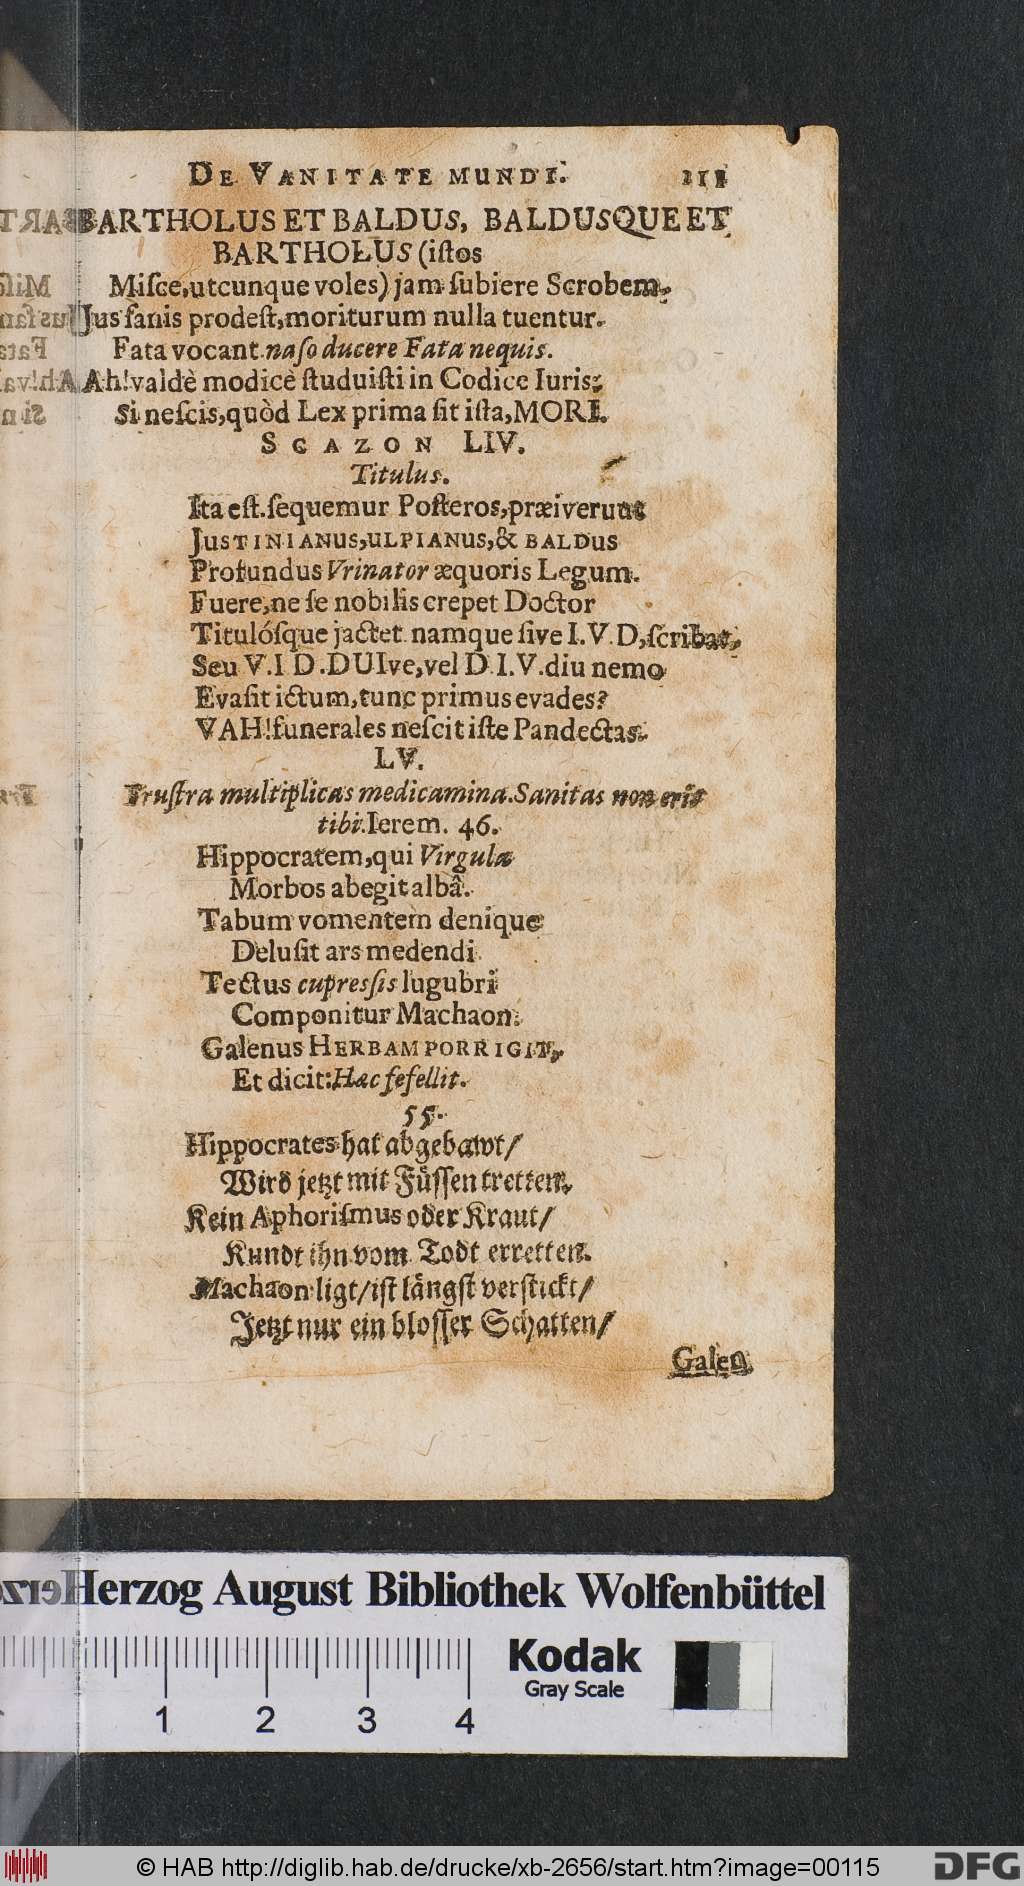 DE VANITATE MUNDI. 111
BARTHOLUS ET BALDUS, BALDUSQUE ET
BARTHOLUS (iſtos
Miſce, utcunque voles) jam ſubiere Scrobem,
Jus ſanis prodeſt, moriturum nulla tuentur.
Fata vocant. naſo ducere Fata nequis.
Ah! valdè modicè ſtuduiſti in Codice Iuris;
Si neſcis, quòd Lex prima ſit iſta, MORI.
SCAZON LIV.
Titulus.
Ita eſt. ſequemur Poſteros, præiverunt
JUSTINIANUS, ULPIANUS, & BALDUS
Profundus Vrinator æquoris Legum.
Fuere, ne ſe nobilis crepet Doctor
Titulóſque jactet. namque ſive I. V. D, ſcribat,
Seu V. I D. DUIve, vel D. I. V. diu nemo
Evaſit ictum, tunc primus evades?
VAH! funerales neſcit iſte Pandectas.
LV.
Fruſtra multiplicas medicamina. Sanitas non erit
tibi. Ierem. 46.
Hippocratem, qui Virgulæ
Morbos abegit albâ.
Tabum vomentem denique
Deluſit ars medendi.
Tectus cupreſſis lugubri
Componitur Machaon.
Galenus HERBAM PORRIGIT,
Et dicit: Hæc fefellit.
55.
Hippocrates hat abgebawt/
Wird jetzt mit Füſſen tretten,
Kein Aphoriſmus oder Kraut/
Kundt ihn vom Todt erretten.
Machaon ligt/ iſt längſt verſtickt/
Jetzt nur ein bloſſer Schatten/
Galen
Herzog August Bibliothek Wolfenbüttel
Kodak
Gray Scale
1 2 3 4
© HAB http://diglib.hab.de/drucke/xb-2656/start.htm?image=00115
DFG